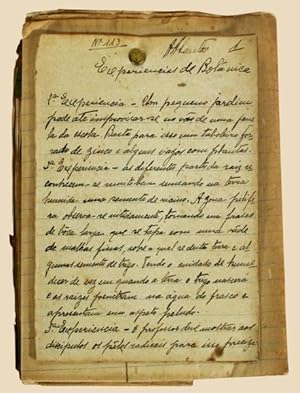 Nº 113
Experiencias de Botánica
1ª Experiencia - Um pequeno jardim
pode até improvisar-se no vão de uma jane
la da escola. Basta para isso um taboleiro for
rado de zinco e alguns vasos com plantas.
2ª Experiencia - as diferentes partes da raiz re
conhecem-se muito bem semeando na terra
humida uma semente de
observa-se nitidamente, tomando um frasco
de bôca larga que se tapa com uma rêde
de malhas finas, sobre a qual se deita terra e al
gumas sementes de trigo. Tendo o cuidado de hume
decer de vez em quando a terra o trigo nascerá
e as raizes penetram na agua do frasco e
apresentam um aspeto
3ª Experiencia - O professor deve mostrar aos
discipulos os pêlos radicais para isso